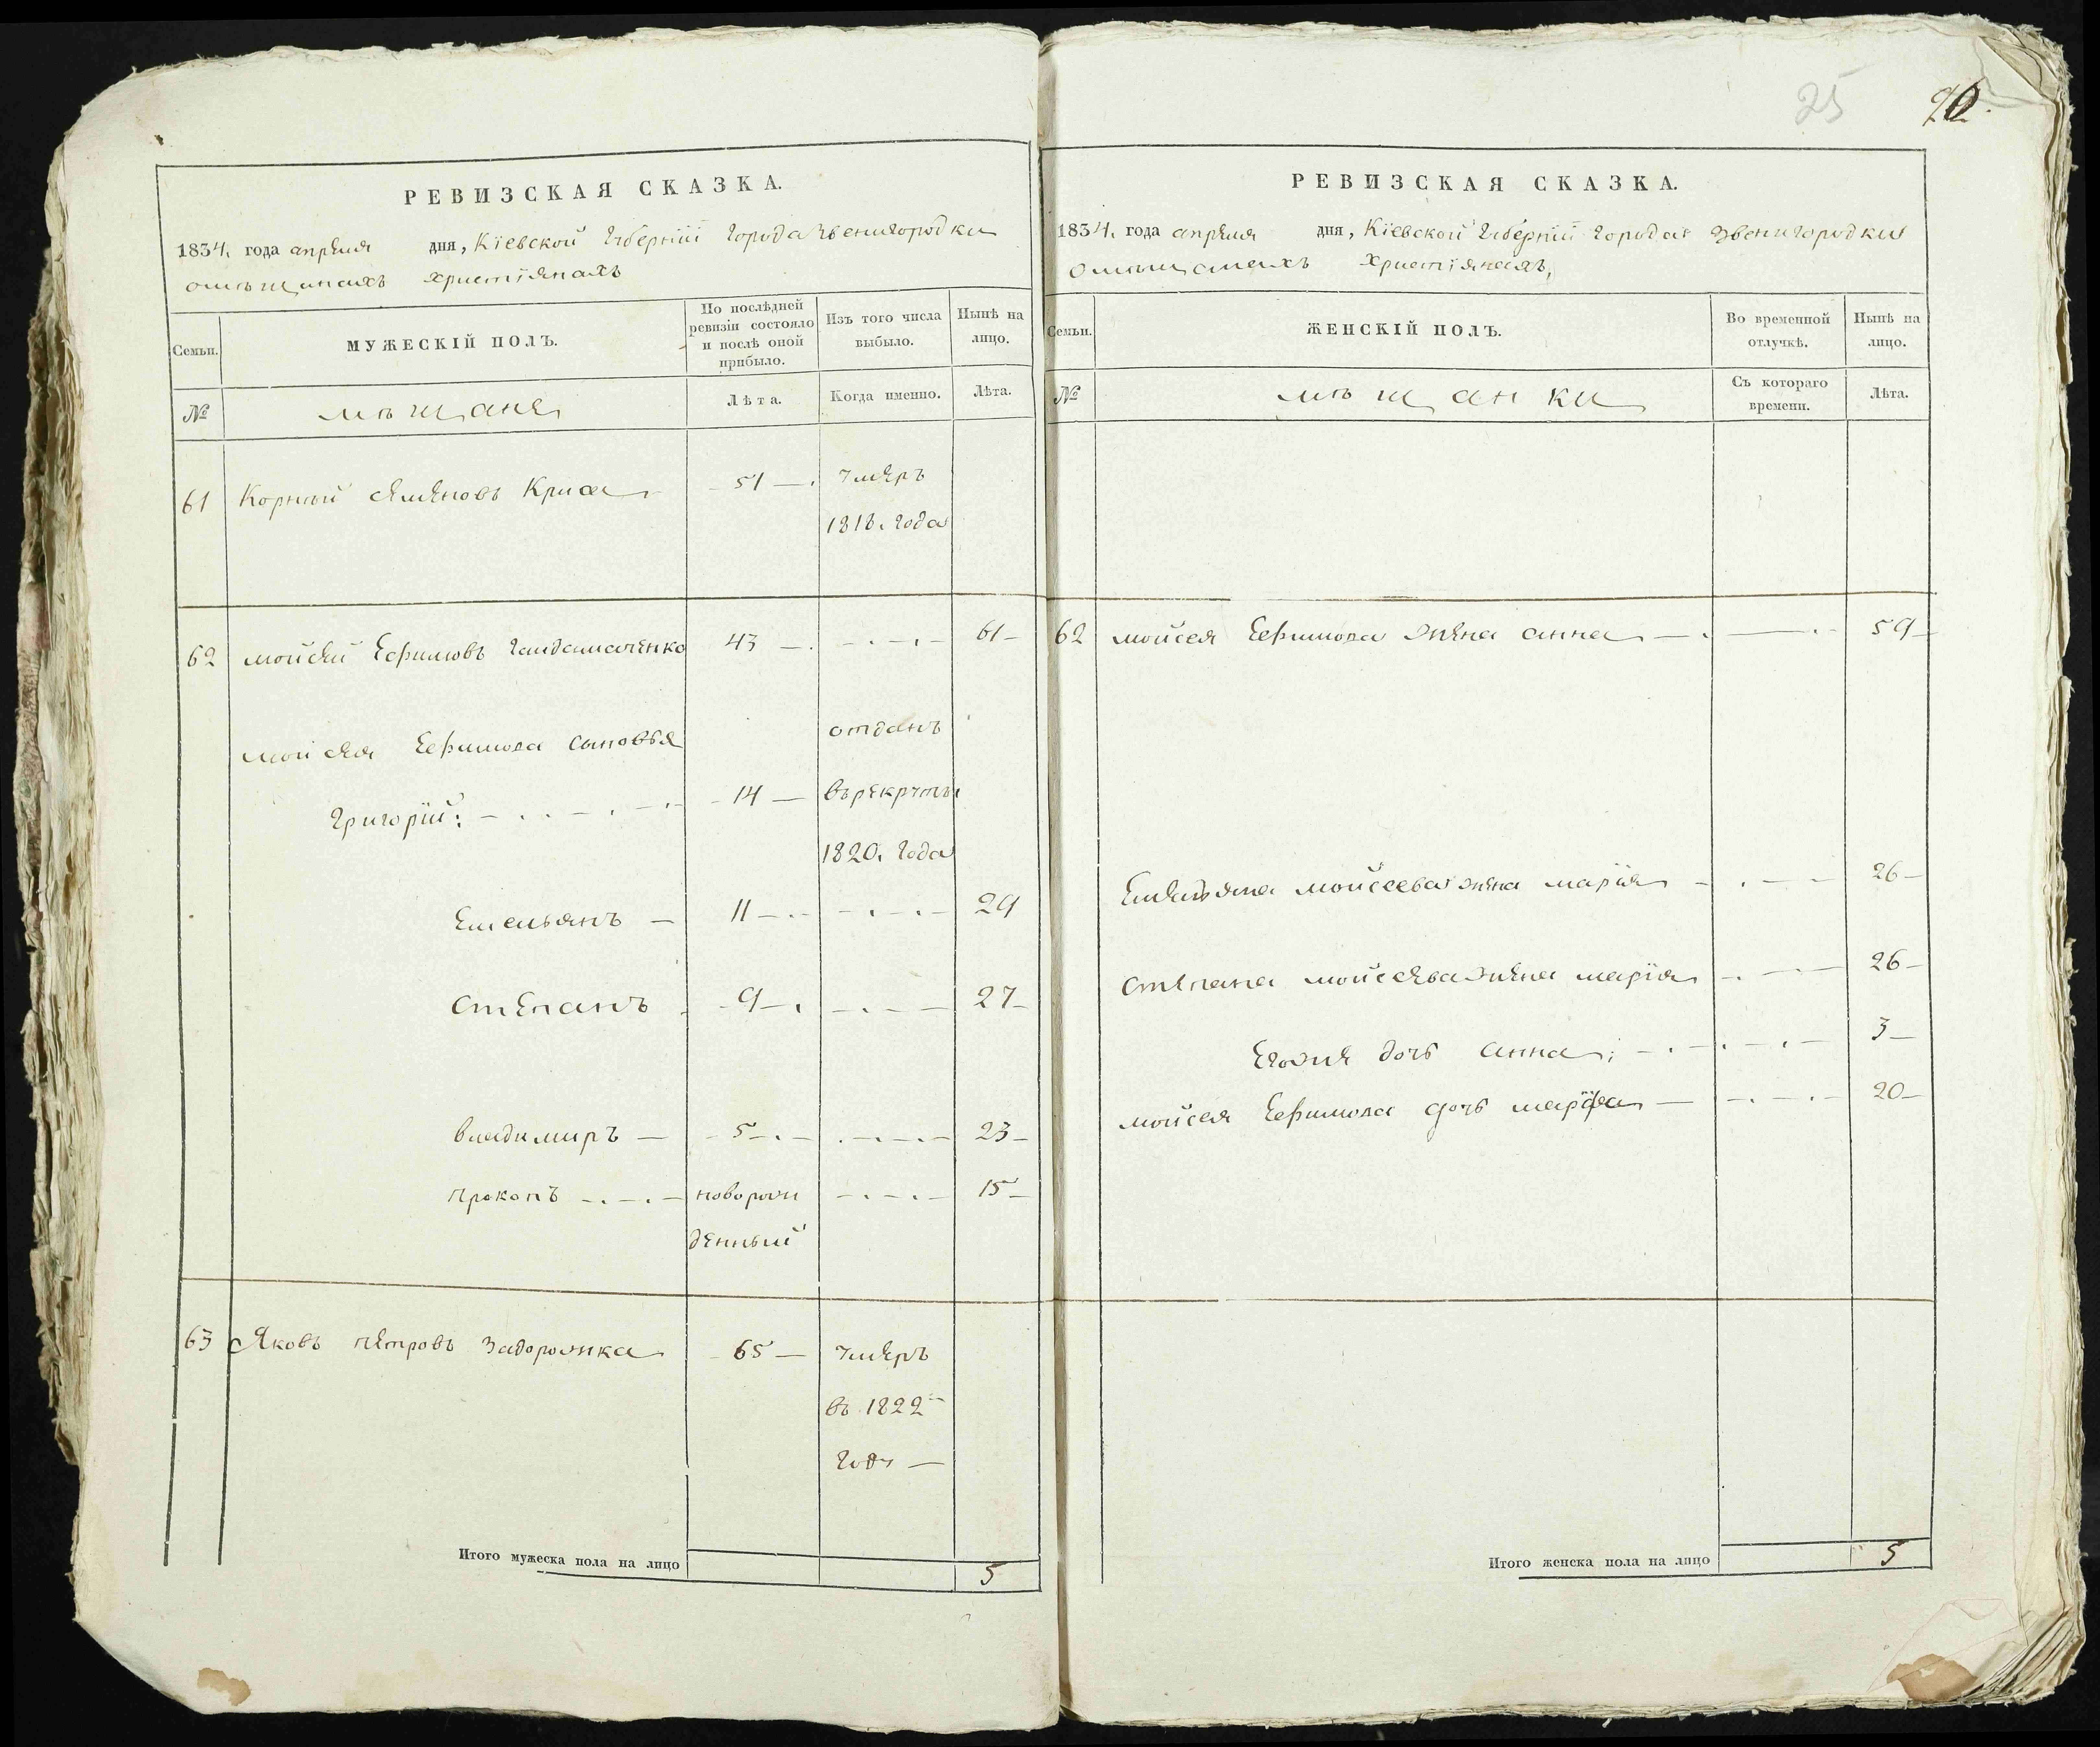 25
РЕВИЗСКАЯ СКАЗКА.
1834. года апреля дня, Кіевской Губерніи города Звенигородки
омѣщанахъ христіянахъ
Семьи. МУЖЕСКІЙ ПОЛЪ. По послѣдней ревизіи состояло и послѣ оной прибыло. Изъ того числа выбыло. Нынѣ на лицо.
№ мѣщане Лѣта. Когда именно. Лѣта.
61 Корный Семеновъ Криса 51 умеръ
1818. года
62 мойсей Ефимовъ Гайдамаченко 43 61
мойсея Ефимова сыновья отданъ
Григорій: 14 врекруты
1820. года
Емельянъ 11 29
степанъ 9 27
владимиръ 5 23
прокопъ новорож 15
денный
63 Яковъ петровъ Задорожка 65 умеръ
въ 1822
году
Итого мужеска пола на лицо 5
РЕВИЗСКАЯ СКАЗКА.
1834. года апреля дня, Кіевской Губерніи города Звенигородки
омѣщанахъ христіянахъ,
Семьи. ЖЕНСКІЙ ПОЛЪ. Во временной отлучкѣ. Нынѣ на лицо.
№ мѣщанки Съ котораго времени. Лѣта.
62 мойсея Ефимова жена анна 59
Емельяна мойсеева жена марія 26
степана мойсеева жена марія 26
Егоже дочь анна; 3
мойсея Ефимова дочь 20
Итого женска пола на лицо 5